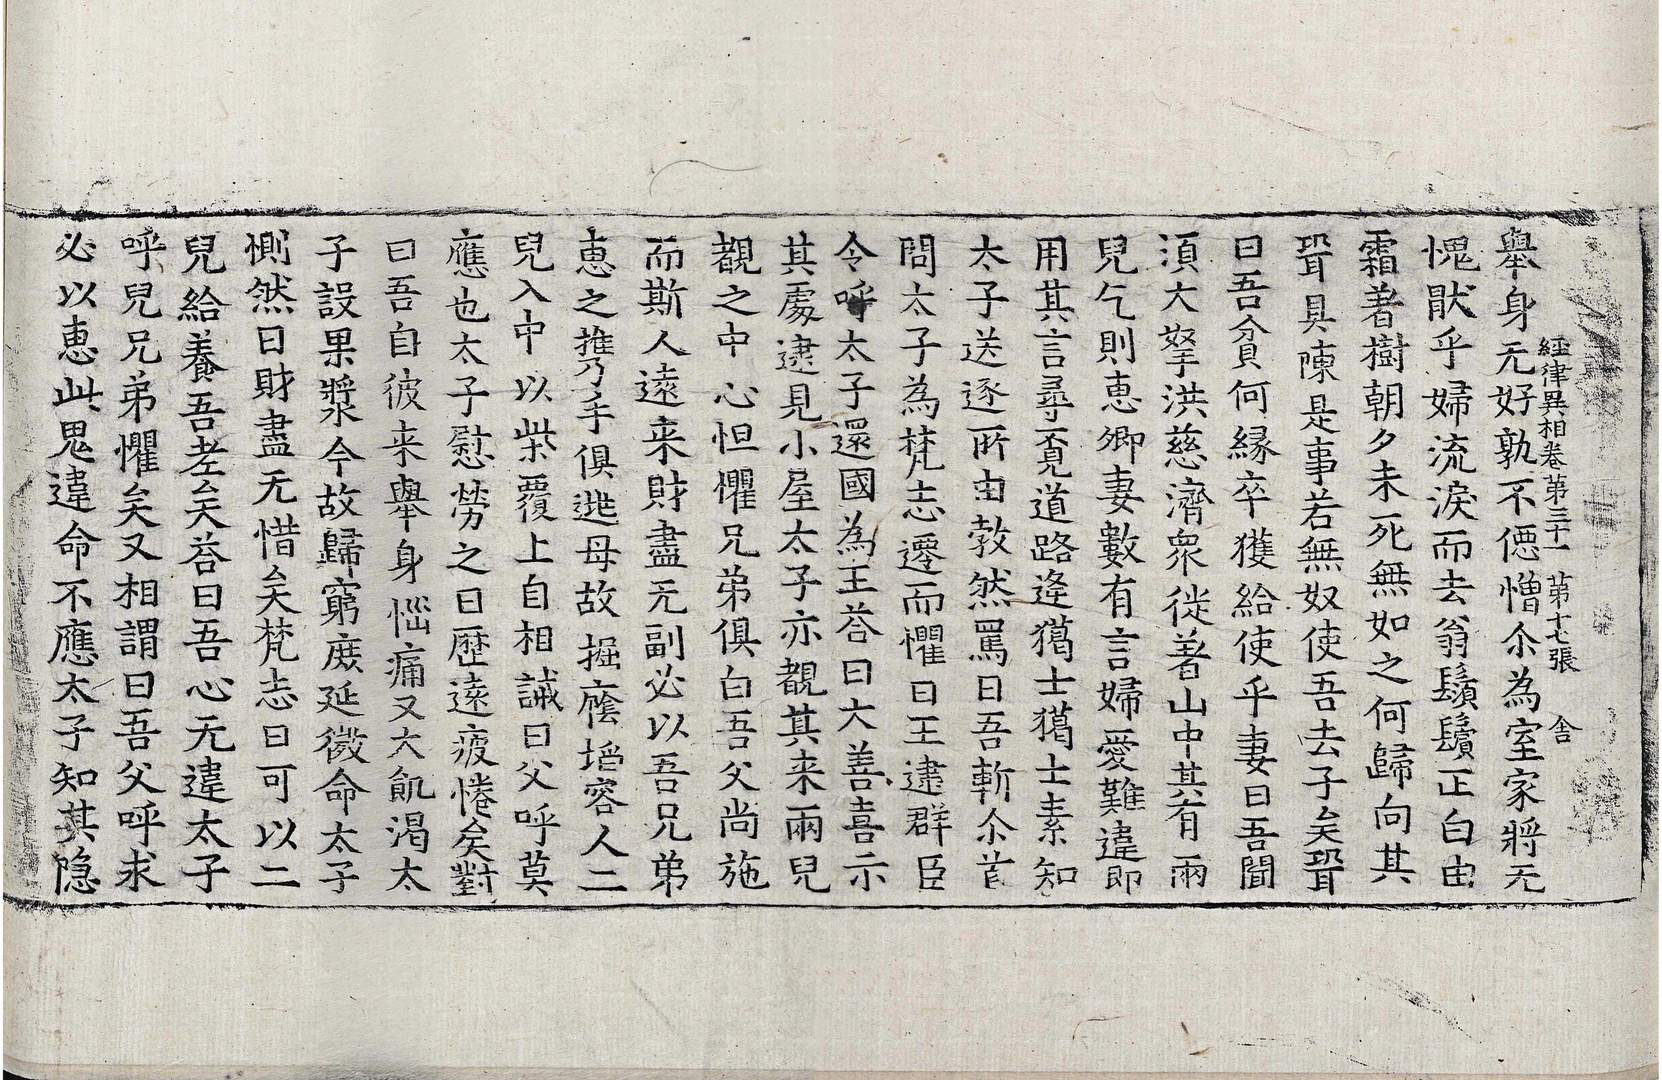 經律異相卷第三十一 第十七張 舍
舉身无好孰不僫憎尒為室家將无
愧猒乎婦流淚而去翁鬚鬢正白由
霜著樹朝夕未死無如之何歸向其
聟具陳是事若無奴使吾去子矣聟
曰吾貧何緣卒獲給使乎妻曰吾聞
湏大拏洪慈濟衆徙著山中其有兩
兒乞則惠卿妻數有言婦愛難違即
用其言尋覔道路逢獦士獦士素知
太子送逐所由敎然罵曰吾斬尒首
問太子為梵志遷而懼曰王逮群臣
令呼太子還國為王荅曰大善喜示
其處逮見小屋太子亦覩其来兩兒
覩之中心怛懼兄弟俱白吾父尚施
而斯人遠来財盡无副必以吾兄弟
惠之携手俱逃母故掘廕埳容人二
兒入中以柴覆上自相誡曰父呼莫
應也太子慰勞之曰歷遠疲惓矣對
曰吾自彼来舉身惱痛又大飢渴太
子設果漿今故歸窮庶延微命太子
惻然曰財盡无惜矣梵志曰可以二
兒給養吾老矣荅曰吾心无違太子
呼兒兄弟懼矣又相謂曰吾父呼求
必以惠此鬼違命不應太子知其隐